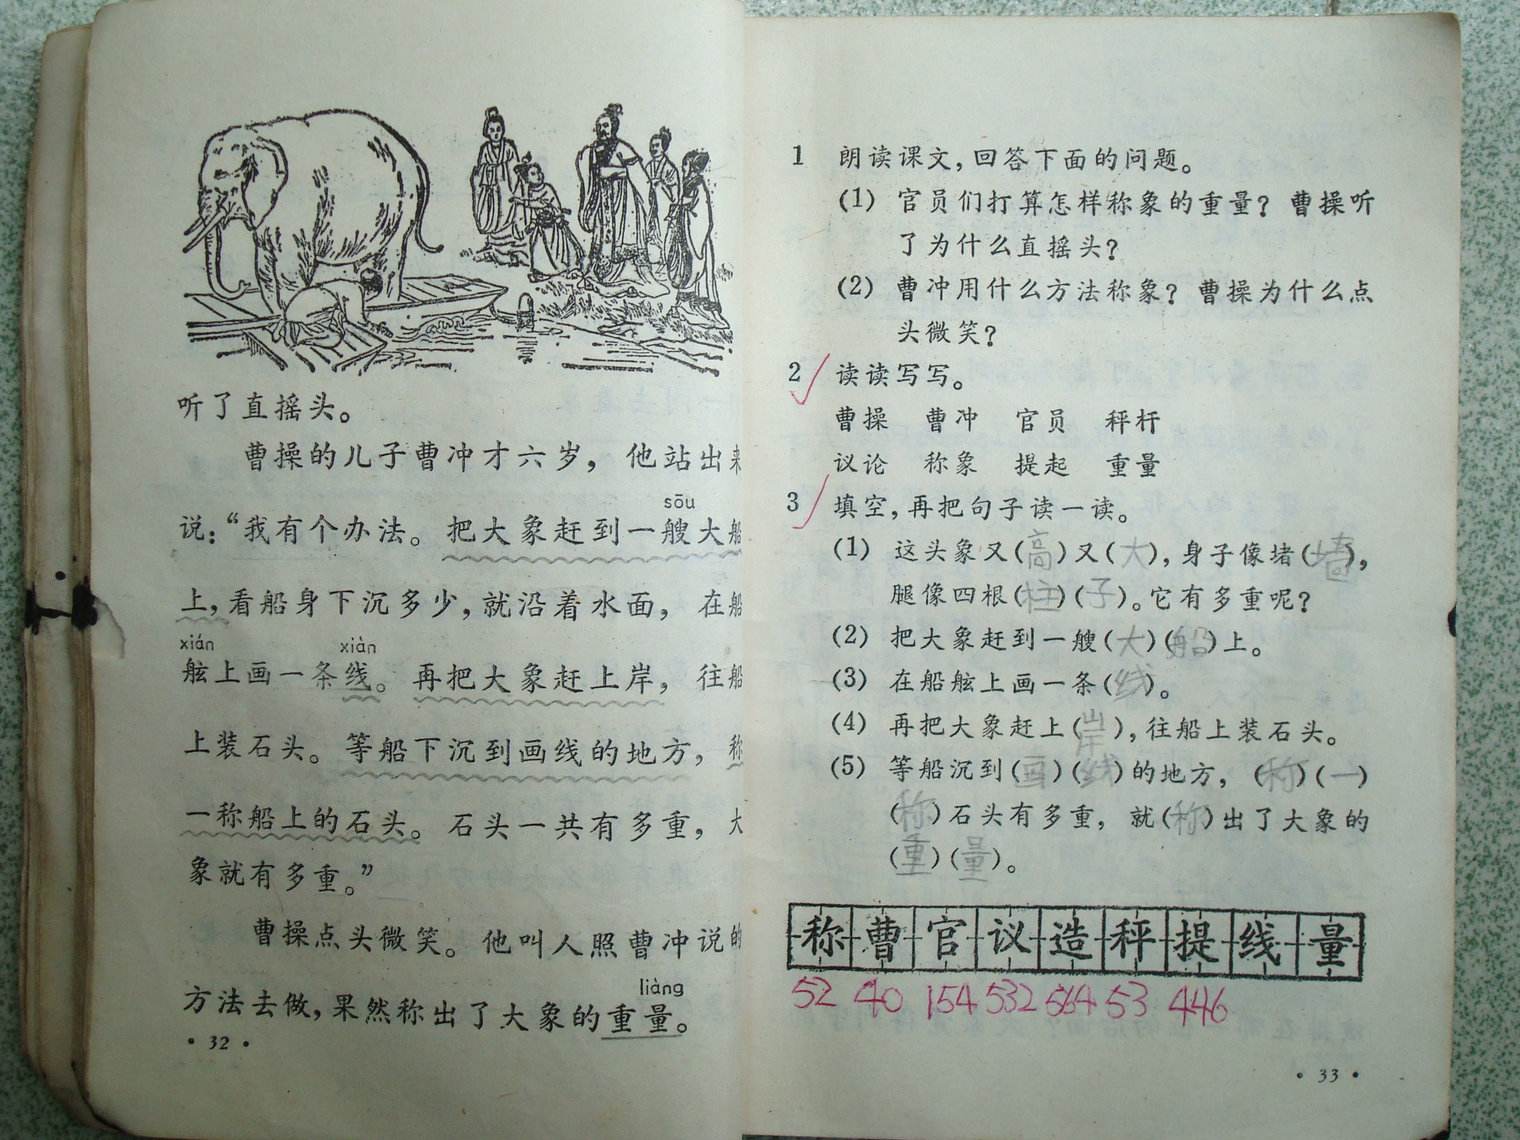 听了直摇头。
曹操的儿子曹冲才六岁，他站出来
sōu
说：“我有个办法。把大象赶到一艘大船
上，看船身下沉多少，就沿着水面，在船
xián xiàn
舷上画一条线。再把大象赶上岸，往船
上装石头。等船下沉到画线的地方，称
一称船上的石头。石头一共有多重，大
象就有多重。”
曹操点头微笑。他叫人照曹冲说的
liàng
方法去做，果然称出了大象的重量。
·32·
1 朗读课文，回答下面的问题。
(1) 官员们打算怎样称象的重量？曹操听
了为什么直摇头？
(2) 曹冲用什么方法称象？曹操为什么点
头微笑？
2 读读写写。
曹操 曹冲 官员 秤杆
议论 称象 提起 重量
3 填空，再把句子读一读。
(1) 这头象又(高)又(大)，身子像堵(墙)，
腿像四根(柱)(子)。它有多重呢？
(2) 把大象赶到一艘(大)(船)上。
(3) 在船舷上画一条(线)。
(4) 再把大象赶上(岸)，往船上装石头。
(5) 等船沉到(画)(线)的地方，(称)(一)
(称)石头有多重，就(称)出了大象的
(重)(量)。
称曹官议造秤提线量
52 40 154 532 564 53 446
·33·